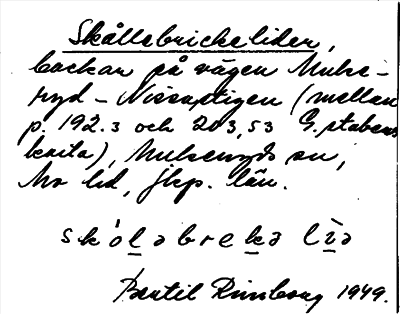 Skållebrickeliden,
backar på vägen Mulse-
ryd - Nissastigen (mellan
p. 192.3 och 203,53 G. stabens
karta), Mulseryds sn,
Mo hd, Jkp. län.
skóləbrekə liə
Bertil 1949.